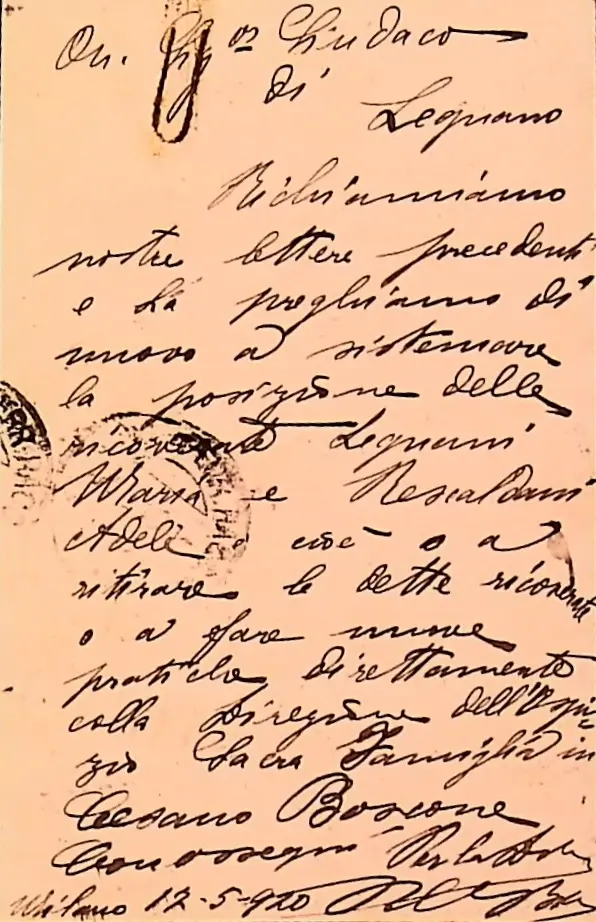 On. Sig.or Sindaco
di
Legnano
Richiamiamo
nostre lettere precedenti
e La preghiamo di
nuovo a sistemare
la posizione delle
ricoverate Legnani
Maria e Rescaldani
Adele cioè o a
ritirare le dette ricoverate
o a fare nuove
pratiche direttamente
colla Direzione dell'Ospi-
zio Sacra Famiglia in
Cesano Boscone
Con ossequi Per la
Milano 17-5-920